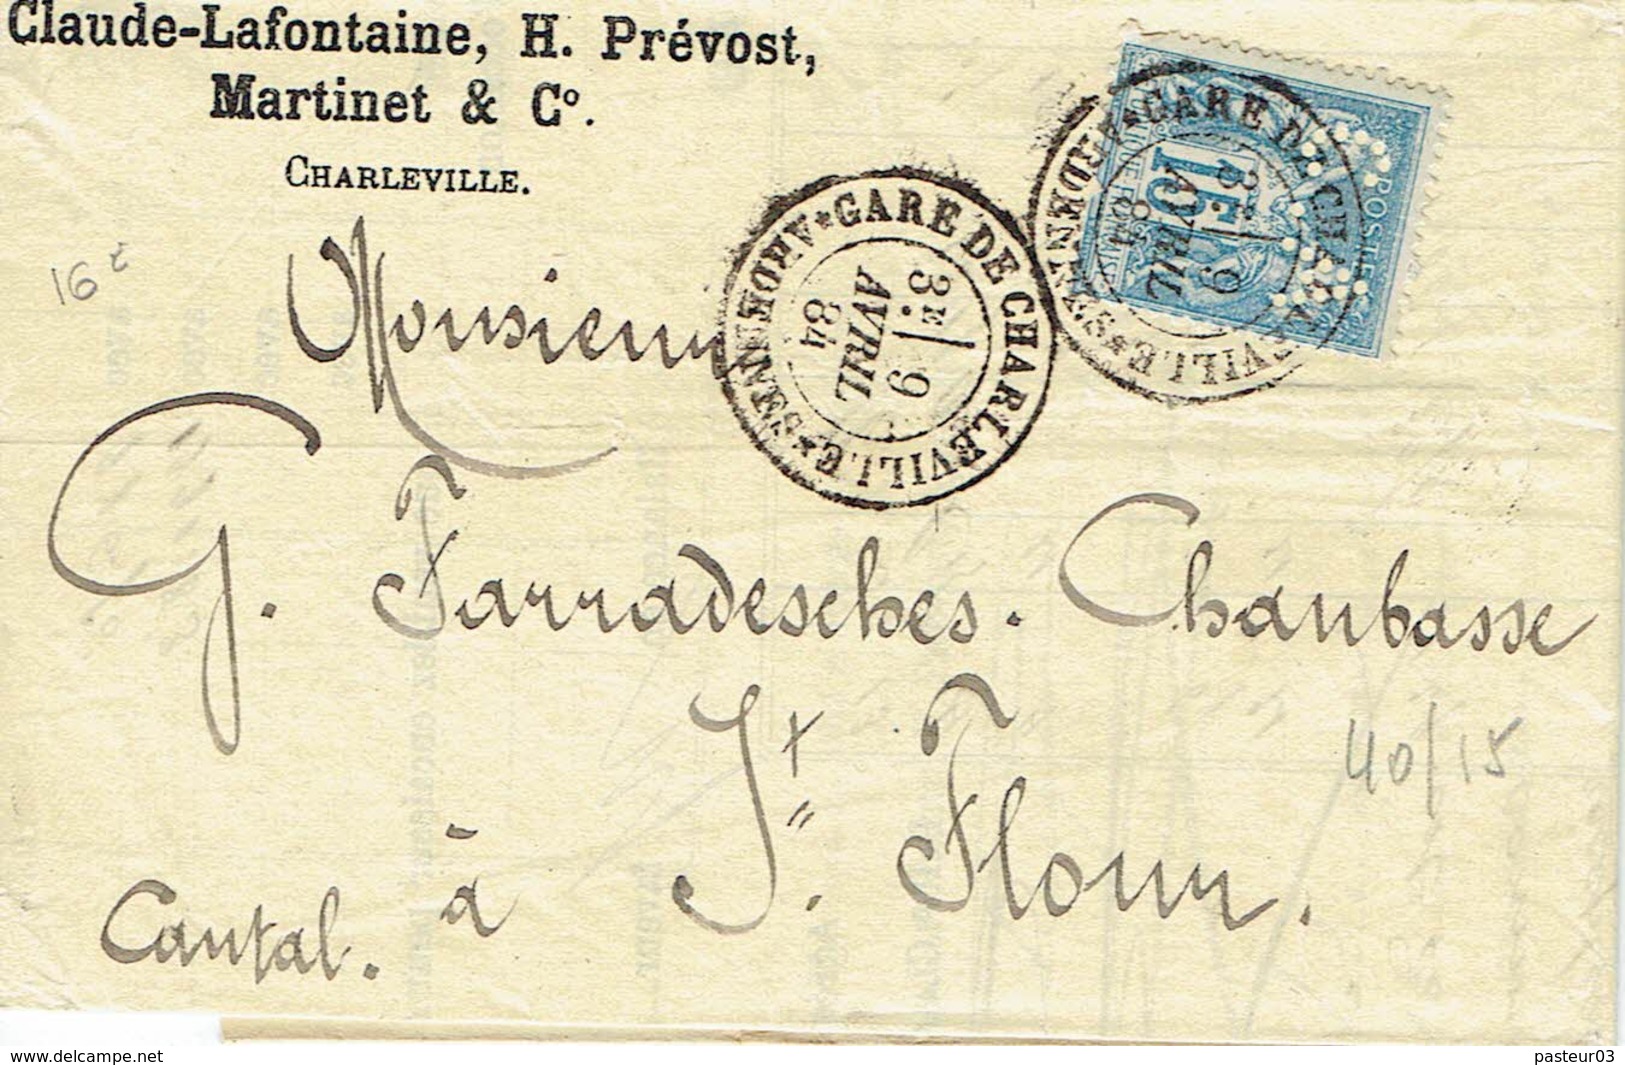 Claude-Lafontaine, H. Prévost,
Martinet & Cº.
CHARLEVILLE.
16 t
GARE DE CHARLEVILLE
ARDENNES
3E / 9
AVRIL
84
GARE DE CHARLEVILLE
ARDENNES
3E / 9
AVRIL
84
POSTES
15
Monsieur
G. Farradesches. Chaubasse
à St. Flour.
Cantal.
40/15
www.delcampe.net
pasteur03